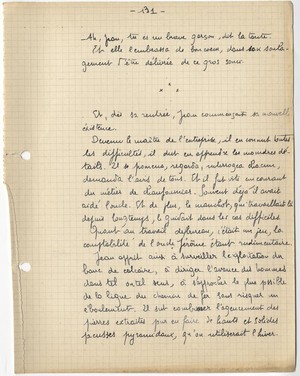 - 131 -
Ah, Jean, tu es un brave garçon, dit la tante.
Et elle l'embrassa de bon cœur, dans son soula-
gement d'être délivrée de ce gros souci.
* * *
Or, dès sa rentrée, Jean commençait sa nouvelle
existence.
Devenu le maître de l'entreprise, il en connut toutes
les difficultés, il dut en apprendre les moindres dé-
tails. Il questionna, regarda, interrogea chacun,
demanda l'avis de tous. Et il fut vite au courant
du métier de chaufournier. Souvent déjà il avait
aidé l'oncle. Et de plus, le manchot, qui travaillait là
depuis longtemps, le guidait dans les cas difficiles.
Quant au travail du bureau, c'était un jeu, la
comptabilité de l'oncle Jérôme étant rudimentaire.
Jean apprit aussi à surveiller l'exploitation du
banc de calcaire, à diriger l'avance des hommes
dans tel ou tel sens, à s'approcher le plus possible
de la ligne du chemin de fer sans risquer un
éboulement. Il sut combiner l'agencement des
pierres extraites pour en faire de hauts et solides
pyramidaux, qu'on utiliserait l'hiver.